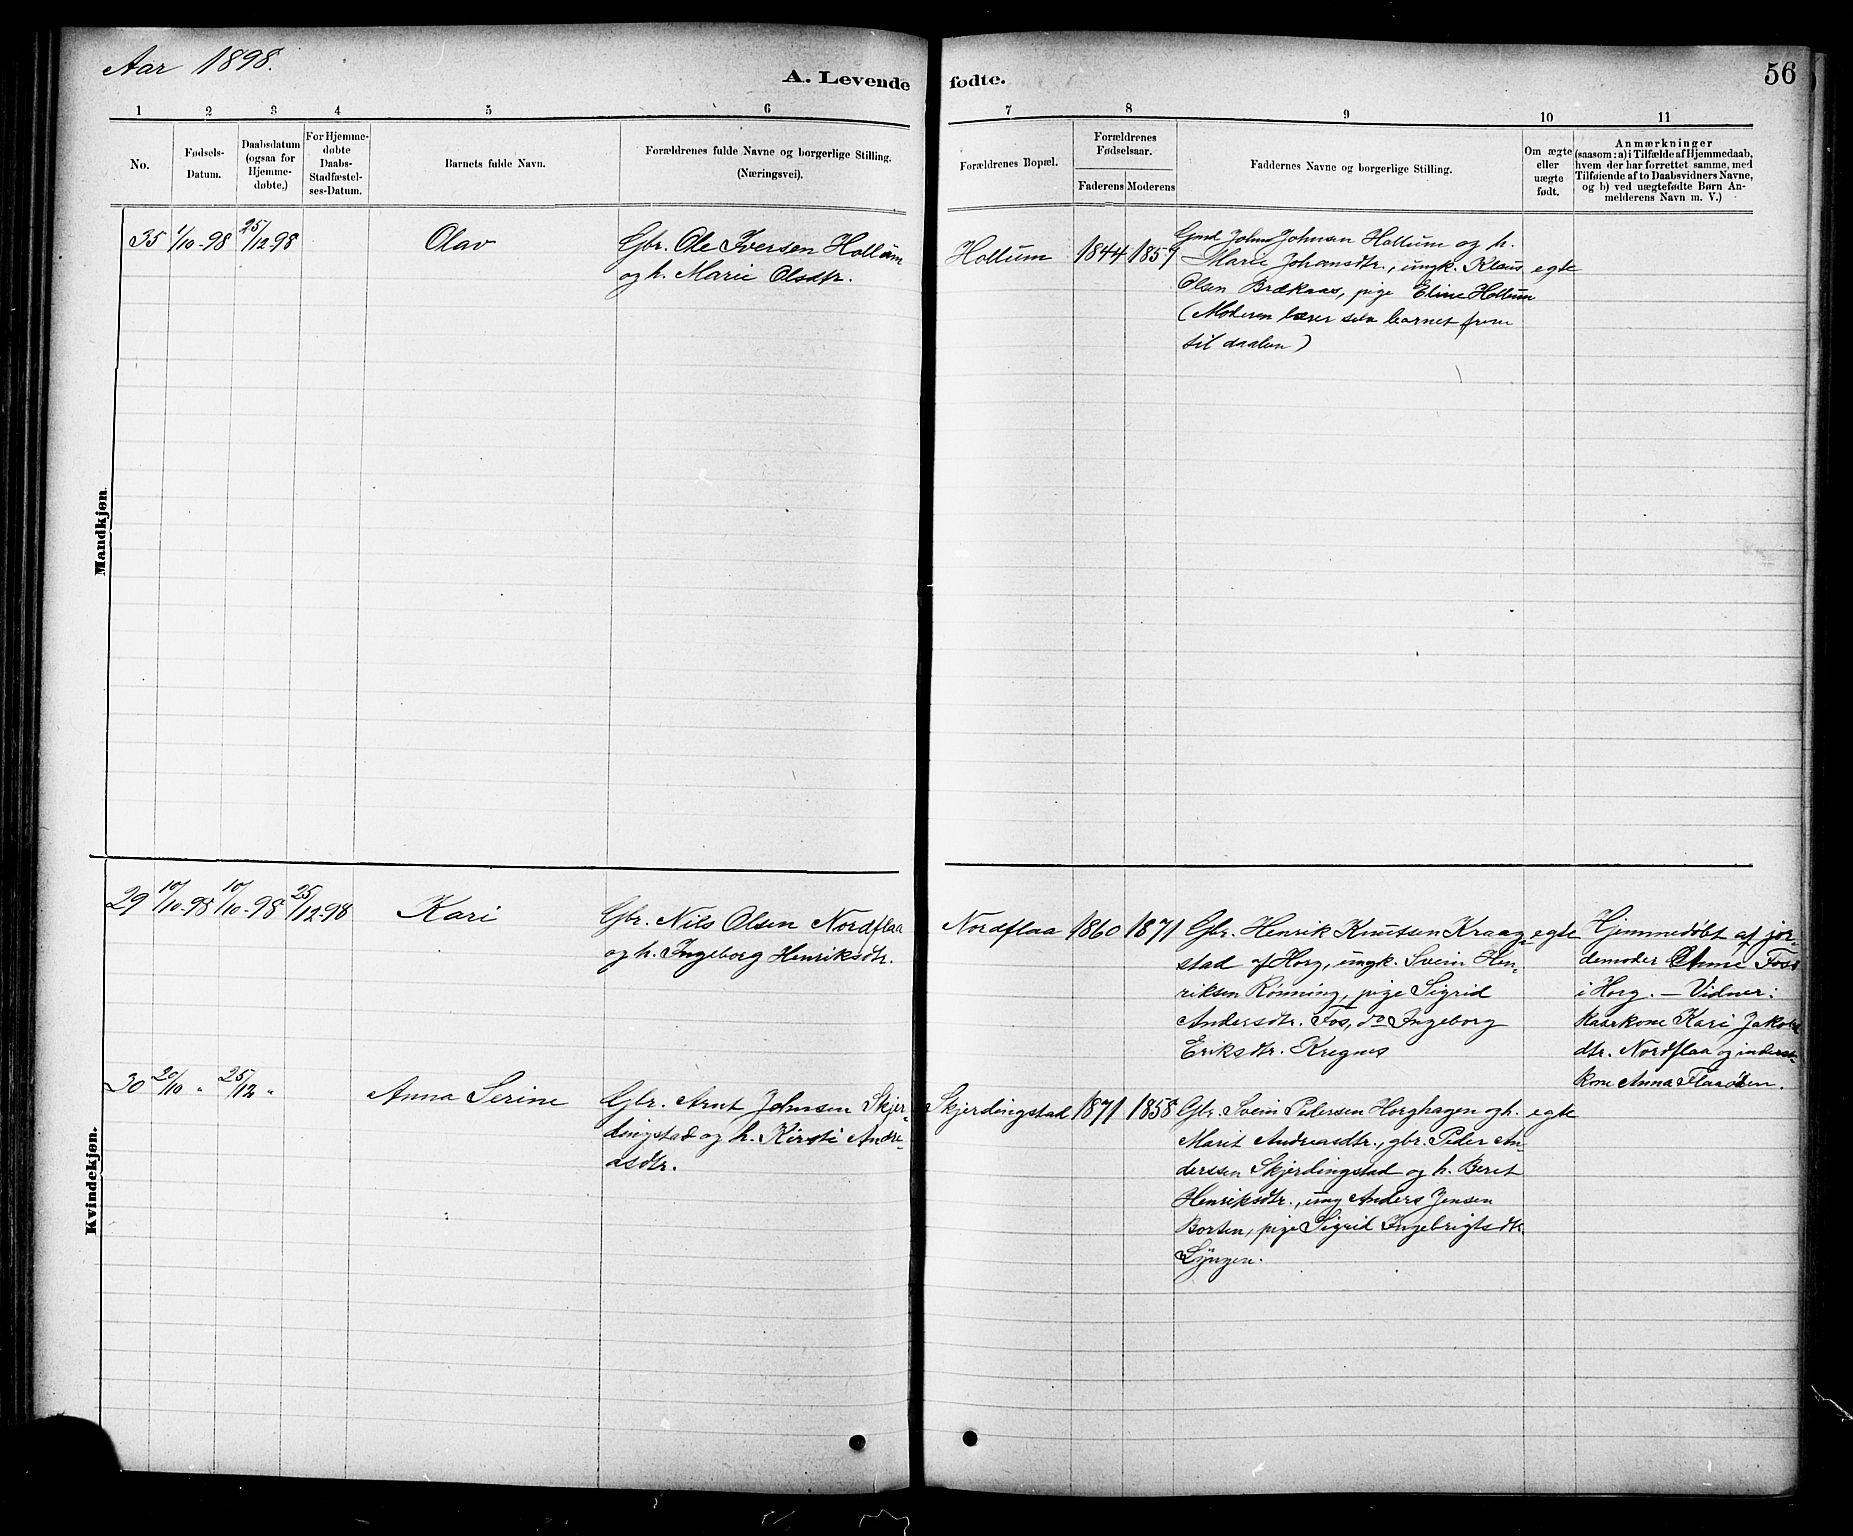 Aar 1898.
A. Levende fødte.
56
1 2 3 4 5 6 7 8 9 10 11
No.
Fødsels-
Datum.
Daabsdatum
(ogsaa for
Hjemme-
døbte.)
For Hjemme-
døbte
Daabs-
Stadfæstel-
ses-Datum.
Barnets fulde Navn.
Forældrenes fulde Navne og borgerlige Stilling.
(Næringsvei).
Forældrenes Bopæl.
Forældrenes
Fødselsaar.
Faderens Moderens
Faddernes Navne og borgerlige Stilling.
Om ægte
eller
uægte
født.
Anmærkninger
(saasom: a) i Tilfælde af Hjemmedaab,
hvem der har forrettet samme, med
Tilføiende af to Daabsvidners Navne,
og b) ved uægtefødte Børn An-
melderens Navn m. V.)
Mandkjøn.
35 1/10-98 25/12-98
Olav
Gbr. Ole Iversen Hollum
og h. Marie Olsdtr.
Hollum
1844 1857
Gmd John Johnsen Hollum og h.
Marie Johansdtr., ungk. Klaus
Olsen Brækaas, pige Eline Hollum
(Moderen bærer selv barnet frem
til daaben)
egte
Kvindekjøn.
29 10/10-98 10/10-98 25/12-98
Kari
Gbr. Nils Olsen Nordflaa
og h. Ingeborg Henriksdtr.
Nordflaa
1860 1871
Gbr. Henrik Knutsen Kraag-
stad af Horg, ungk. Svein Hen-
riksen Rønning, pige Sigrid
Andersdtr. Fos, do Ingeborg
Eriksdtr. Kregnes
egte
Hjemmedøbt af jor-
demoder Anne Foss
i Horg. — Vidner:
Kaarkone Kari Jakobs
dtr. Nordflaa og inderst-
kone Anna Flaaøien.
30 20/10 " 25/12 "
Anna Serine
Gbr. Arnt Johnsen Skjer-
dingstad og h. Kirsti Andre-
asdtr.
Skjerdingstad
1871 1858
Gbr. Svein Pedersen Horghagen og h.
Marit Andreasdtr., gbr. Peder An-
derssen Skjerdingstad og h. Beret
Henriksdtr., ung Anders Jensen
Borten, pige Sigrid Ingebrigtsdtr.
Lyngen.
egte